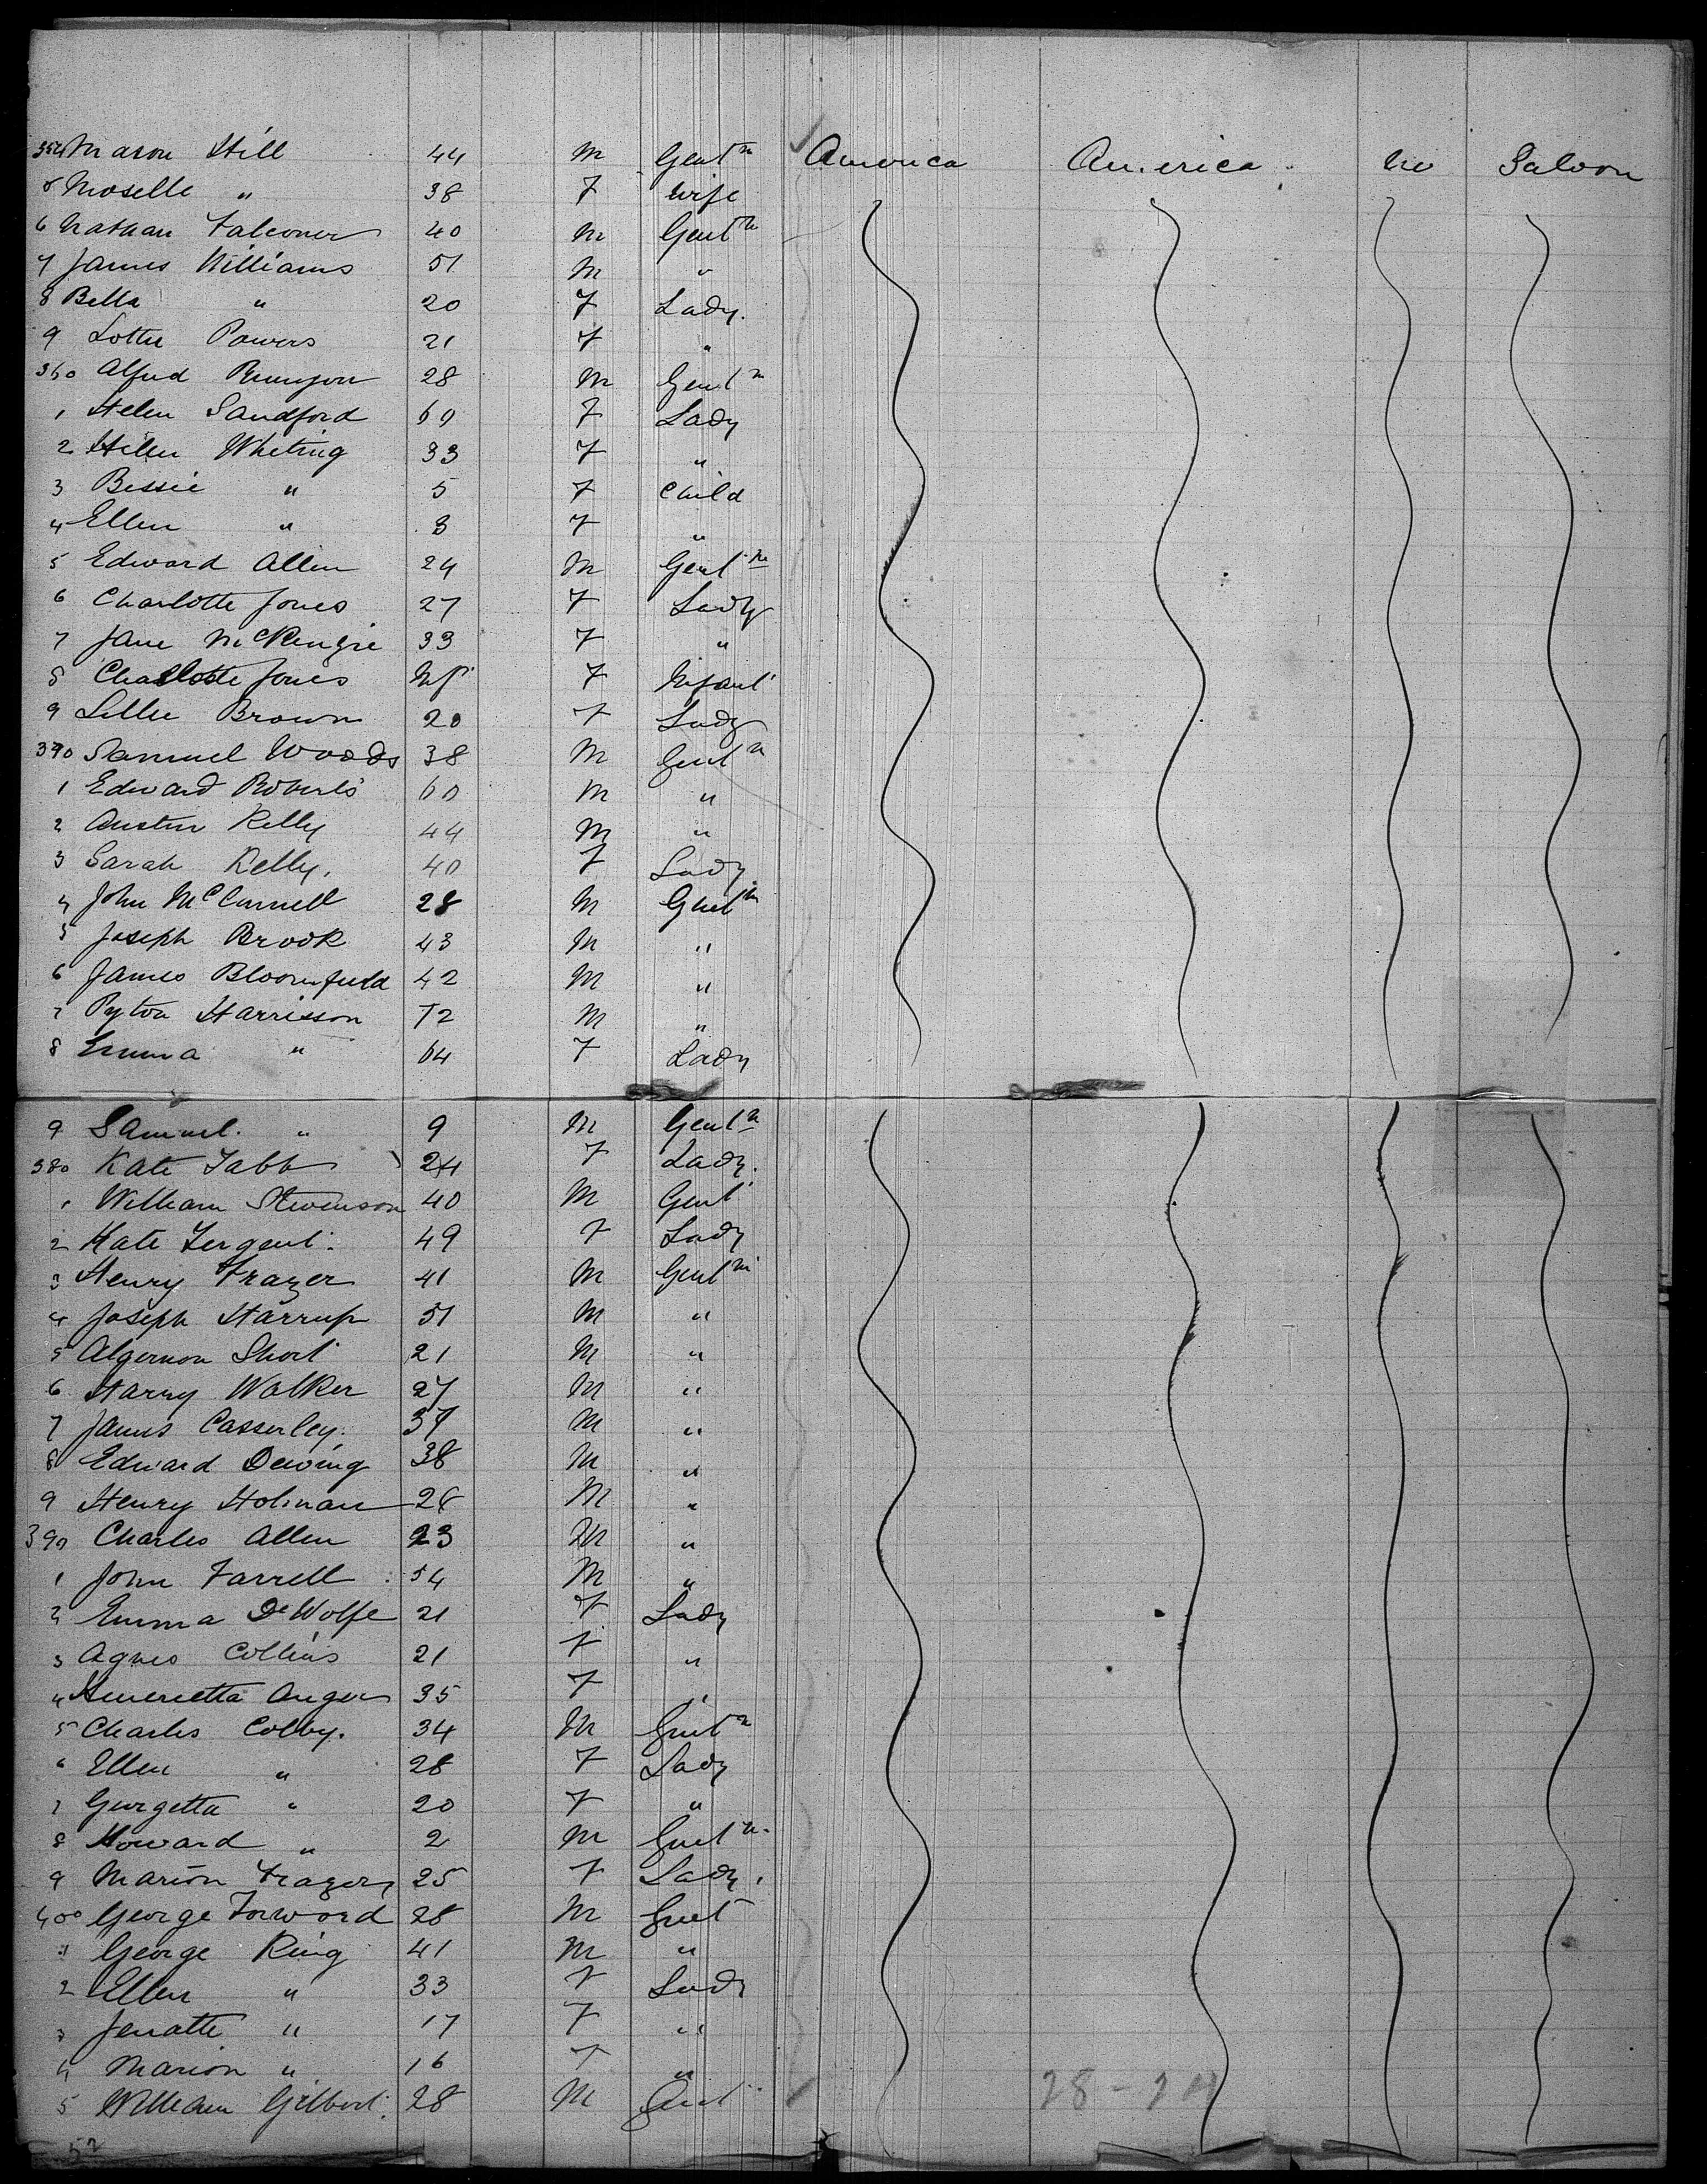 354 Mason Hill 44 M Gentn America America no Saloon
5 Moselle " 38 F wife
6 Nathan Falconer 40 M Gentn
7 James Williams 51 M "
8 Bella " 20 F Lady.
9 Lottie Powers 21 F "
360 Alfred 28 M Gentn
1 Helen Sandford 60 F Lady
2 Helen Whiting 33 F "
3 Bessie " 5 F Child
4 Ellen " 3 F "
5 Edward Allen 24 M Gentn
6 Charlotte Jones 27 F Lady
7 Jane McKenzie 33 F "
8 Charlotte Jones Inft F Infant
9 Lillie Brown 20 F Lady
370 Samuel Woods 38 M Gentn
1 Edward Roberts 60 M "
2 Austin Kelly 44 M "
3 Sarah Kelly. 40 F Lady
4 John 28 M Gentn
5 Joseph Brook 43 M "
6 James Bloomfield 42 M "
7 Pyton Harrisson 72 M "
8 Emma " 64 F Lady
9 Samuel. " 9 M Gentn
380 Kate Tabb 24 F Lady.
1 William Stevenson 40 M Gent
2 Kate 49 F Lady
3 Henry Frazer 41 M Gentn
4 Joseph Harrup 51 M "
5 Algernon Short 21 M "
6 Harry Walker 27 M "
7 James Casserley. 37 M "
8 Edward Dewing 38 M "
9 Henry Holman 28 M "
390 Charles Allen 23 M "
1 John Farrell 54 M "
2 Emma DeWolfe 21 F Lady
3 Agnes Collins 21 F "
4 Henerietta Anger 35 F "
5 Charles Colby. 34 M Gentn
6 Ellen " 28 F Lady
7 Georgetta " 20 F "
8 Howard " 2 M Gentn
9 Marion Frazer 25 F Lady.
400 George Forword 28 M Gent
1 George King 41 M "
2 Ellen " 33 F Lady
3 Jenatte " 17 F "
4 Marion " 16 F "
5 William Gilbert. 28 M Gent
52